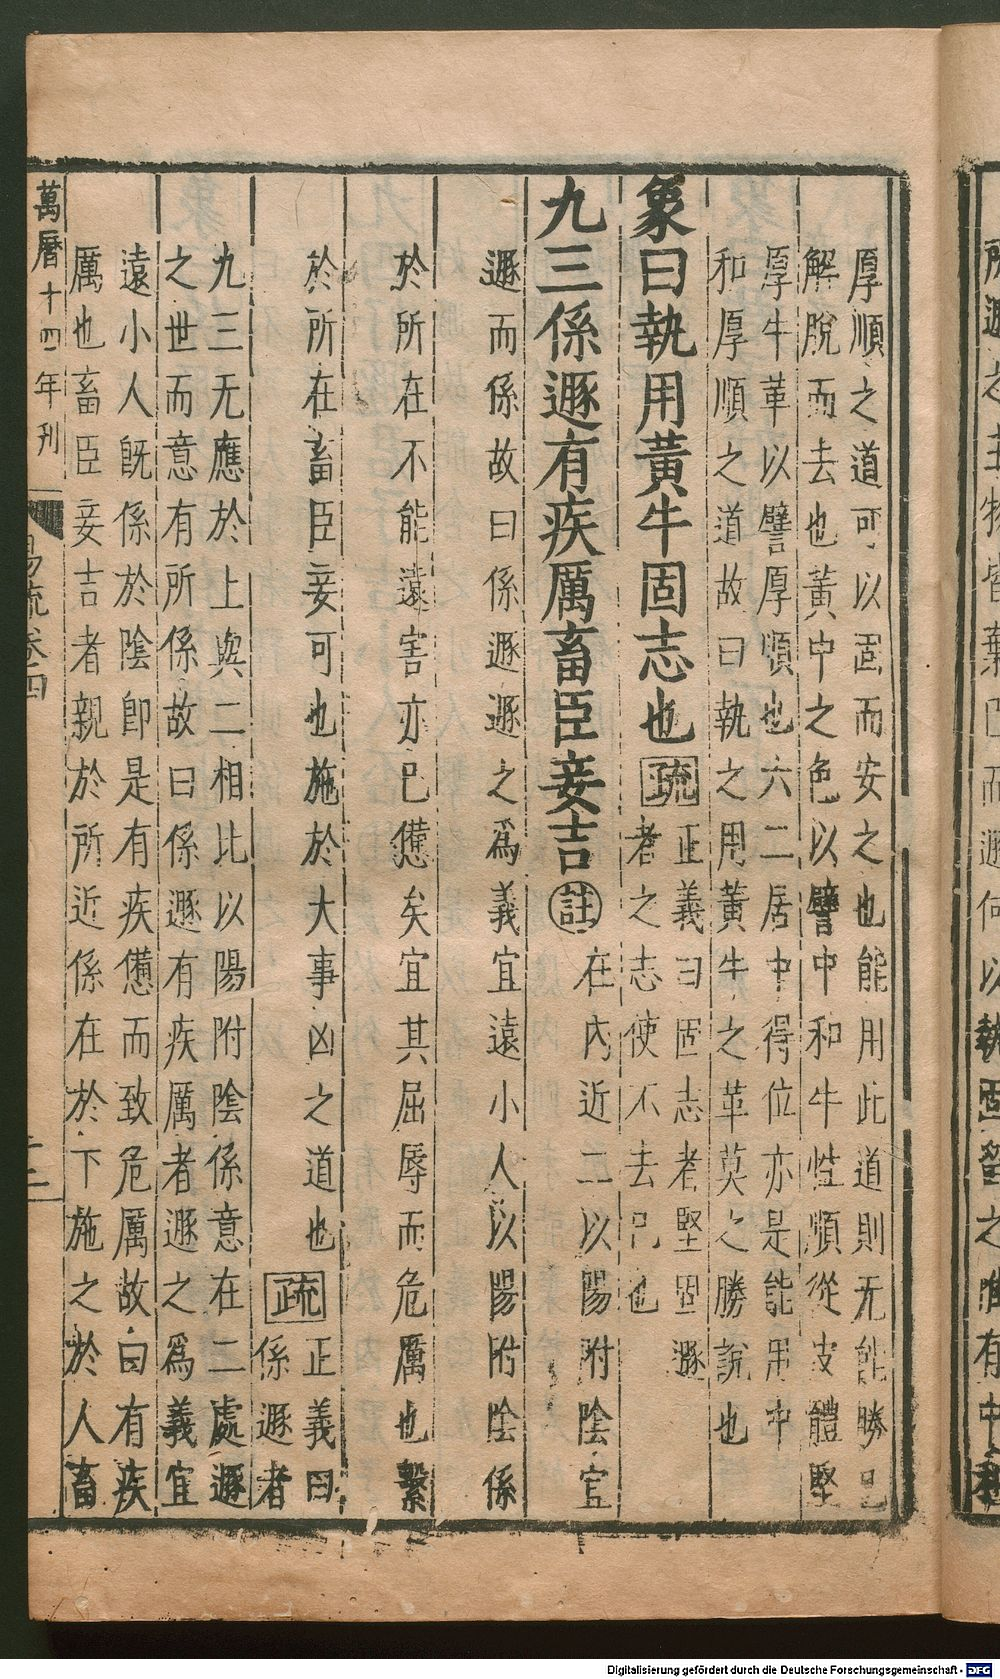 厚順之道可以固而安之也能用此道則无能勝己
解脫而去也黃中之色以譬中和牛性順從皮體堅
厚牛革以譬厚順也六二居中得位亦是能用中
和厚順之道故曰執之用黃牛之革莫之勝說也
象曰執用黃牛固志也疏正義曰固志者堅固遯
者之志使不去己也
九三係遯有疾厲畜臣妾吉註在內近二以陽附陰宜
遯而係故曰係遯遯之爲義宜遠小人以陽附陰係
於所在不能遠害亦已憊矣宜其屈辱而危厲也繫
於所在畜臣妾可也施於大事凶之道也疏正義曰
係遯者
九三无應於上與二相比以陽附陰係意在二處遯
之世而意有所係故曰係遯有疾厲者遯之爲義宜
遠小人既係於陰卽是有疾憊而致危厲故曰有疾
厲也畜臣妾吉者親於所近係在於下施之於人畜
萬曆十四年刊
易疏卷四
Digitalisierung gefördert durch die Deutsche Forschungsgemeinschaft - DFG